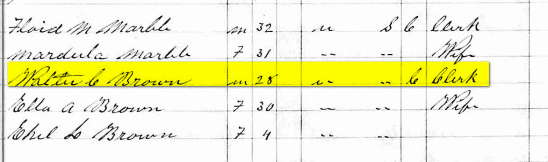 Floid M Marble m 32 " S C Clerk
Mardula Marble F 31 " " Wife
Walter C Brown m 28 " " C Clerk
Ella A Brown F 30 " " Wife
Ethel L Brown F 4 " "